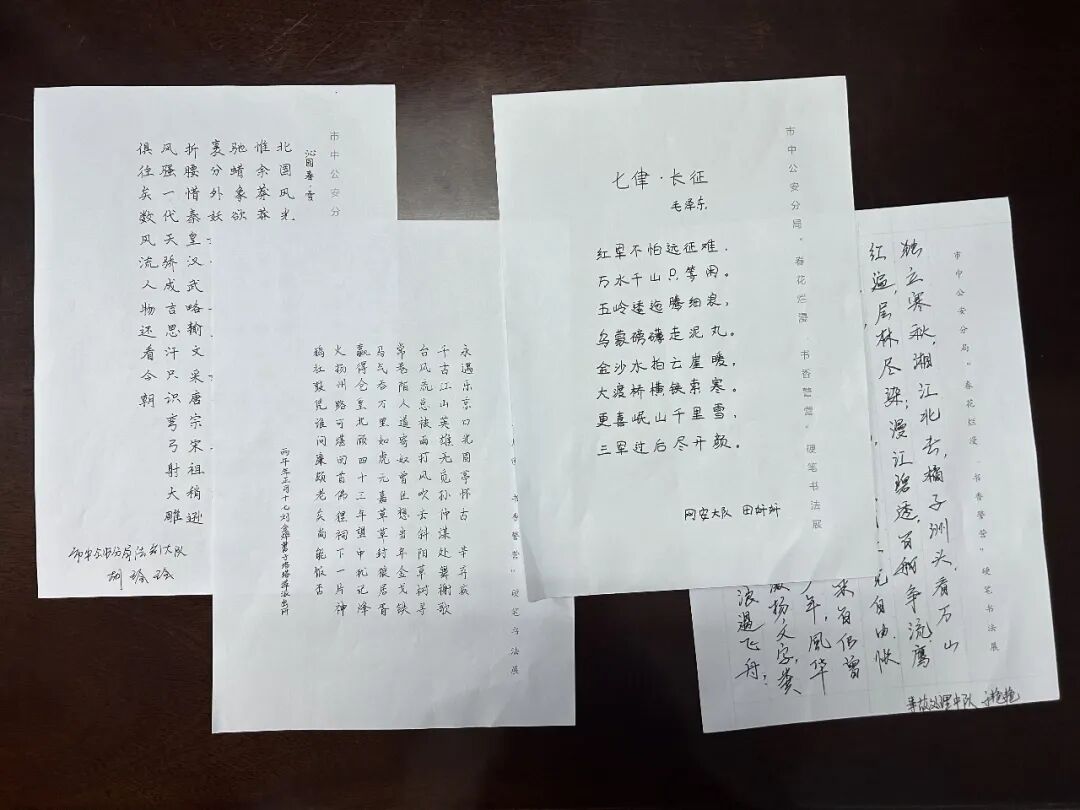 市中公安分
沁园春·雪
北国风光
惟余莽莽
驰蜡象欲
裹分外妖
折腰惜秦皇汉武略输文采唐宗宋祖稍逊
风强一代天骄成吉思汗只识弯弓射大雕
俱往矣数风流人物还看今朝
市中公安分局法制大队
书香警营”硬笔书法展
永遇乐京口北固亭怀古 辛弃疾
千古江山英雄无觅孙仲谋处舞榭歌
台风流总被雨打风吹去斜阳草树寻
常巷陌人道寄奴曾住想当年金戈铁
马气吞万里如虎元嘉草草封狼居胥
赢得仓皇北顾四十三年望中犹记烽
火扬州路可堪回首佛狸祠下一片神
鸦社鼓凭谁问廉颇老矣尚能饭否
市中公安分局“春花烂漫·书香警营”硬笔书法展
七律·长征
毛泽东
红军不怕远征难.
万水千山只等闲。
五岭逶迤腾细浪,
乌蒙磅礴走泥丸。
金沙水拍云崖暖,
大渡桥横铁索寒。
更喜岷山千里雪,
三军过后尽开颜。
网安大队 田妍妍
市中公安分局“春花烂漫·书香警营”硬笔书法展
独立寒秋,湘江北去,橘子洲头,看万山
红遍,层林尽染;漫江碧透,百舸争流.鹰
自由.怅
来百侣曾
年,風华
激扬文字,粪
浪遏飞舟;
事故处理中队